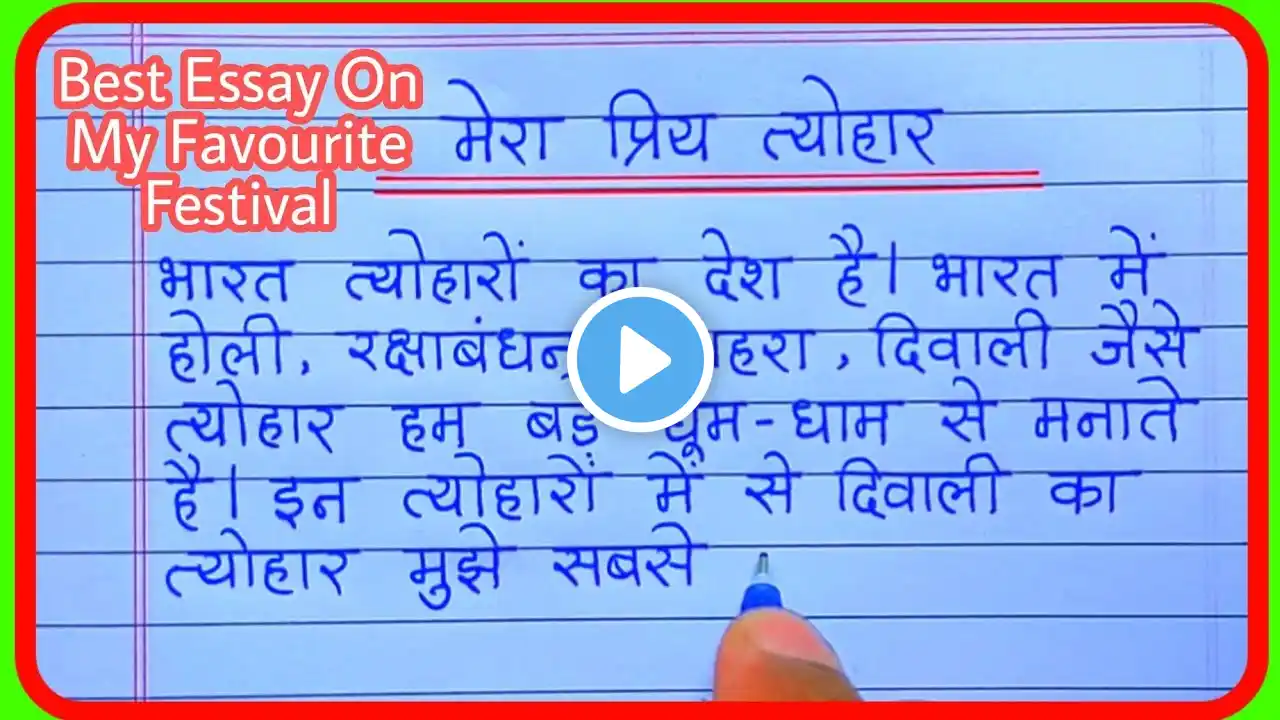 Best Essay On
My Favourite
Festival
मेरा प्रिय त्योहार
भारत त्योहारों का देश है। भारत में
होली, रक्षाबंधन, दिवाली जैसे
त्योहार हम बड़े धूम-धाम से मनाते
है। इन त्योहारों में से दिवाली का
त्योहार मुझे सबसे